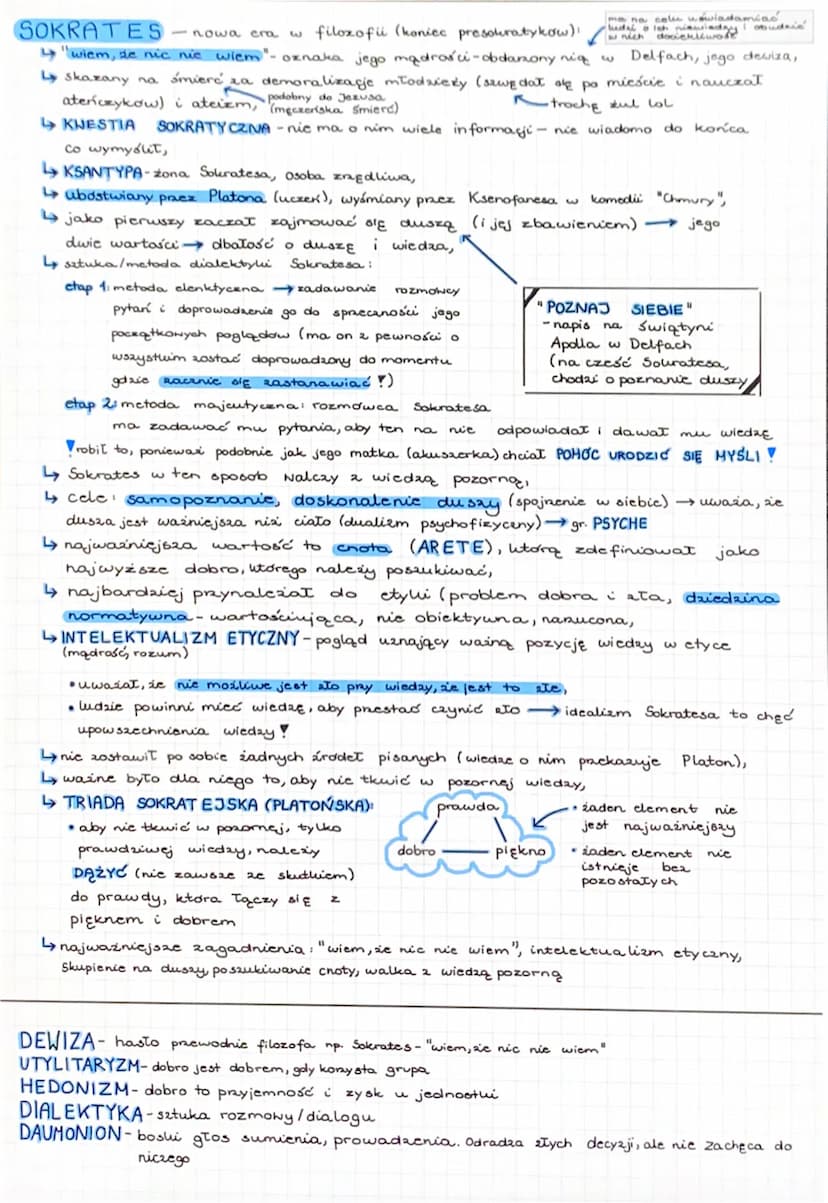 SOKRATES – nowa era w filozofii (koniec presokratyków)!
ma na celu uświadamiać
ludzi o ich niewiedzy i obudzić
w nich dociekliwość
↳ "wiem, że nic nie wiem" - oznaka jego mądrości - obdarzony nią w Delfach, jego dewiza,
↳ skazany na śmierć za demoralizację młodzieży (szwędał się po mieście i nauczał
ateńczyków) i ateizm,
podobny do Jezusa
(męczeńska śmierć)
trochę żul lol
↳ KWESTIA SOKRATYCZNA - nie ma o nim wiele informacji – nie wiadomo do końca
co wymyślił,
↳ KSANTYPA - żona Sokratesa, osoba zrzędliwa,
↳ ubóstwiany przez Platona (uczeń), wyśmiany przez Ksenofanesa w komedii "Chmury",
↳ jako pierwszy zaczął zajmować się duszą (i jej zbawieniem) → jego
dwie wartości → dbałość o duszę i wiedza,
↳ sztuka/metoda dialektyki Sokratesa:
etap 1: metoda elenktyczna → zadawanie rozmówcy
pytań i doprowadzenie go do sprzeczności jego
początkowych poglądów (ma on z pewności o
wszystkim zostać doprowadzony do momentu
gdzie zacznie się zastanawiać!)
"POZNAJ SIEBIE"
- napis na świątyni
Apolla w Delfach
(na cześć Sokratesa,
chodzi o poznanie duszy)
etap 2: metoda majeutyczna: rozmówca Sokratesa
ma zadawać mu pytania, aby ten na nie odpowiadał i dawał mu wiedzę
! robił to, ponieważ podobnie jak jego matka (akuszerka) chciał POMÓC URODZIĆ SIĘ MYŚLI !
↳ Sokrates w ten sposób walczy z wiedzą pozorną,
↳ cele: samopoznanie, doskonalenie duszy (spojrzenie w siebie) → uważa, że
dusza jest ważniejsza niż ciało (dualizm psychofizyczny) → gr. PSYCHE
↳ najważniejsza wartość to cnota (ARETE), którą zdefiniował jako
najwyższe dobro, którego należy poszukiwać,
↳ najbardziej przynależał do etyki (problem dobra i zła, dziedzina
normatywna - wartościująca, nie obiektywna, narzucona,
↳ INTELEKTUALIZM ETYCZNY - pogląd uznający ważną pozycję wiedzy w etyce
(mądrość, rozum)
• uważał, że nie możliwe jest zło przy wiedzy, że jest to złe,
• ludzie powinni mieć wiedzę, aby przestać czynić zło → idealizm Sokratesa to chęć
upowszechnienia wiedzy!
↳ nie zostawił po sobie żadnych źródeł pisanych (wiedzę o nim przekazuje Platon),
↳ ważne było dla niego to, aby nie tkwić w pozornej wiedzy,
↳ TRIADA SOKRATEJSKA (PLATOŃSKA):
• aby nie tkwić w pozornej, tylko
prawdziwej wiedzy, należy
DĄŻYĆ (nie zawsze ze skutkiem)
do prawdy, która łączy się z
pięknem i dobrem
prawda
dobro — piękno
• żaden element nie
jest najważniejszy
• żaden element nie
istnieje bez
pozostałych
↳ najważniejsze zagadnienia: "wiem, że nic nie wiem", intelektualizm etyczny,
skupienie na duszy, poszukiwanie cnoty, walka z wiedzą pozorną
DEWIZA - hasło przewodnie filozofa np. Sokrates - "wiem, że nic nie wiem"
UTYLITARYZM - dobro jest dobrem, gdy korzysta grupa
HEDONIZM - dobro to przyjemność i zysk w jednostki
DIALEKTYKA - sztuka rozmowy/dialogu
DAUMONION - boski głos sumienia, prowadzenia. Odradza złych decyzji, ale nie zachęca do
niczego